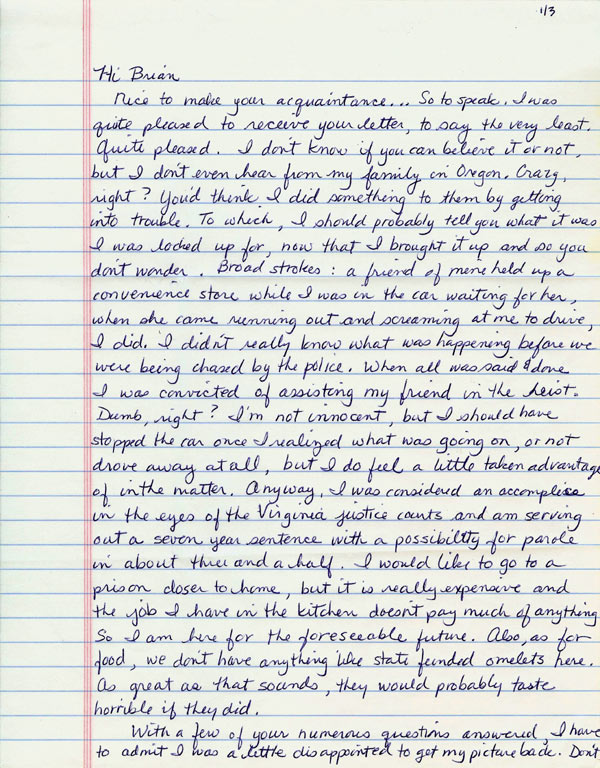 1/3
Hi Brian
Nice to make your acquaintance... So to speak. I was
quite pleased to receive your letter, to say the very least.
Quite pleased. I don't know if you can believe it or not,
but I don't even hear from my family in Oregon. Crazy,
right? You'd think I did something to them by getting
into trouble. To which, I should probably tell you what it was
I was locked up for, now that I brought it up and so you
don't wonder. Broad strokes: a friend of mine held up a
convenience store while I was in the car waiting for her,
when she came running out and screaming at me to drive,
I did. I didn't really know what was happening before we
were being chased by the police. When all was said & done
I was convicted of assisting my friend in the heist.
Dumb, right? I'm not innocent, but I should have
stopped the car once I realized what was going on, or not
drove away at all, but I do feel a little taken advantage
of in the matter. Anyway, I was considered an accomplice
in the eyes of the Virginia justice courts and am serving
out a seven year sentence with a possibility for parole
in about three and a half. I would like to go to a
prison closer to home, but it is really expensive and
the job I have in the kitchen doesn't pay much of anything
So I am here for the foreseeable future. Also, as for
food, we don't have anything like state funded omelets here.
As great as that sounds, they would probably taste
horrible if they did.
With a few of your numerous questions answered, I have
to admit I was a little disappointed to get my picture back. Don't